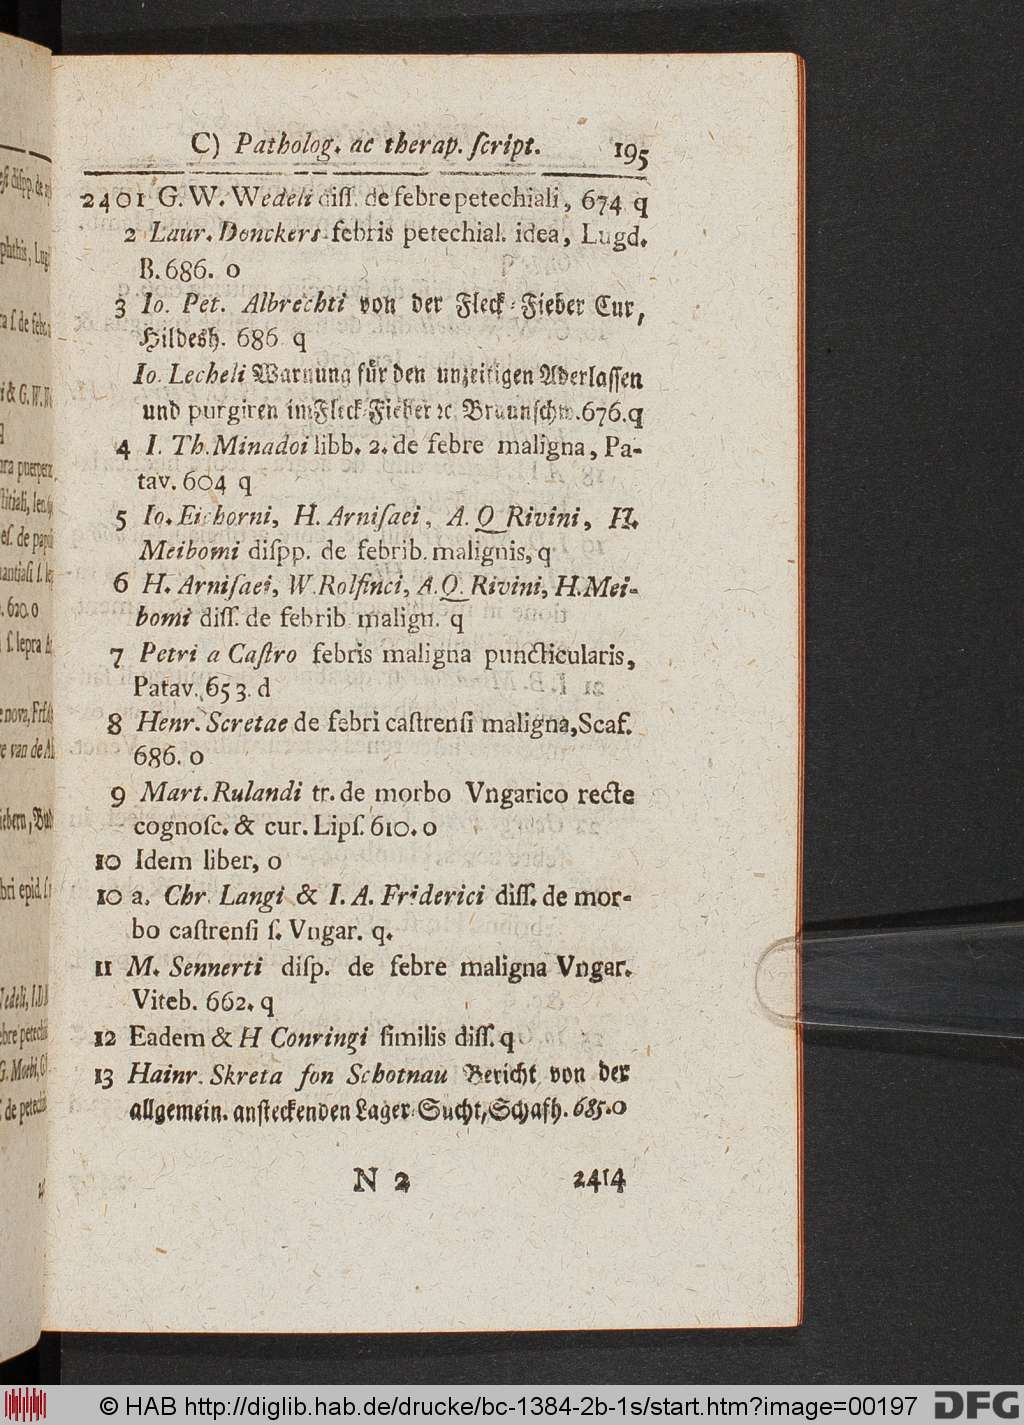 C) Patholog. ac therap. ſcript. 195
2401 G. W. Wedeli diſſ. de febre petechiali, 674 q
2 Laur. Donckers febris petechial. idea, Lugd.
B. 686. o
3 Io. Pet. Albrechti von der Fleck-Fieber Cur,
Hildesh. 686 q
Io. Lecheli Warnung fuͤr den unzeitigen Aderlaſſen
und purgiren im Fleck-Fieber ꝛc Braunſchw. 676. q
4 I. Th. Minadoi libb. 2. de febre maligna, Pa-
tav. 604 q
5 Io. Eichorni, H. Arniſaei, A. Q Rivini, H.
Meibomi diſpp. de febrib. malignis, q
6 H. Arniſaei, W. Rolfinci, A. Q. Rivini, H. Mei-
bomi diſſ. de febrib malign. q
7 Petri a Caſtro febris maligna puncticularis,
Patav. 653. d
8 Henr. Scretae de febri caſtrenſi maligna, Scaf.
686. o
9 Mart. Rulandi tr. de morbo Vngarico recte
cognoſc. & cur. Lipſ. 610. o
10 Idem liber, o
10 a. Chr Langi & I. A. Friderici diſſ. de mor-
bo caſtrenſi ſ. Vngar. q.
11 M. Sennerti diſp. de febre maligna Vngar.
Viteb. 662. q
12 Eadem & H Conringi ſimilis diſſ. q
13 Hainr. Skreta fon Schotnau Bericht von der
allgemein. anſteckenden Lager-Sucht, Schafh. 685. o
N 2 2414
© HAB http://diglib.hab.de/drucke/bc-1384-2b-1s/start.htm?image=00197 DFG